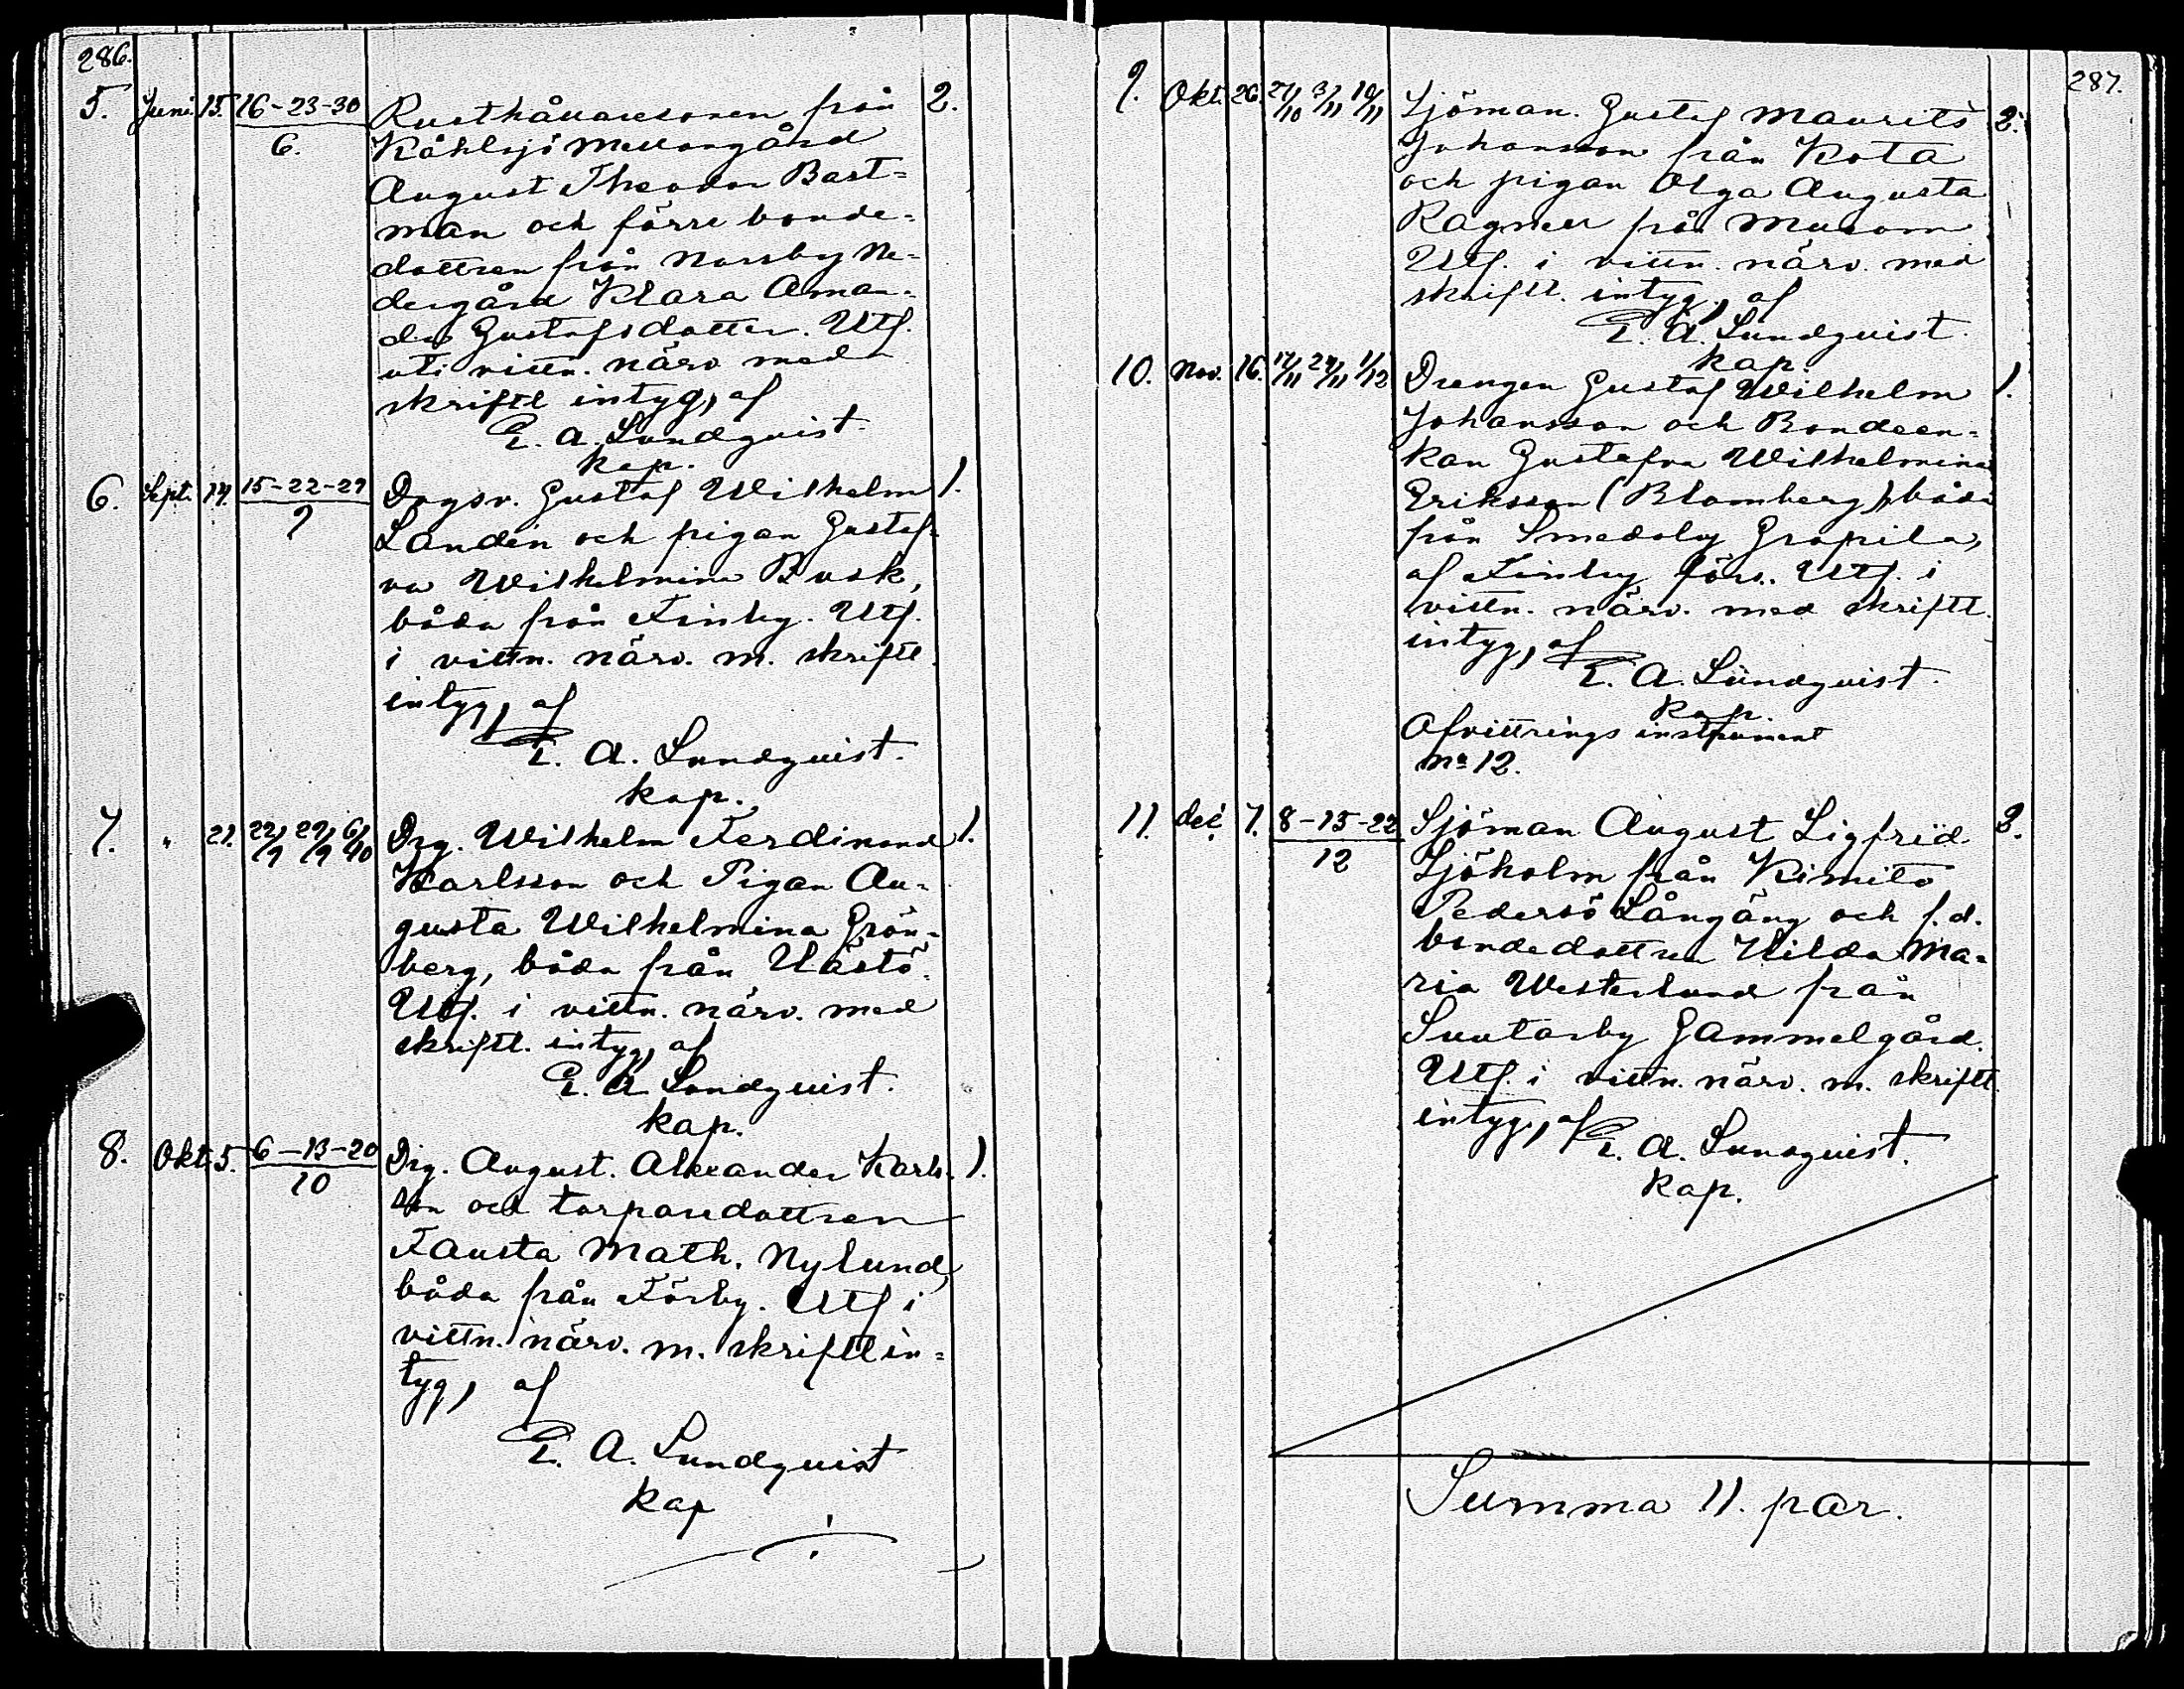 286.
5. Juni. 15. 16-23-30 Rusthållaresonen från 2.
6. Kåhlsjö Mellangård
August Theodor Bast=
man och förre bonde=
dottren från Norrby Ne=
dergård Klara Aman=
da Gustafsdotter. Utf.
uti vittn. närv. med
skriftl intyg, af
E. A. Lundqvist
kap.
6. Sept. 14. 15-22-29 Drgsv. Gustaf Wilhelm 1.
9 Landén och pigan Gustaf=
va Wilhelmina Busk,
båda från Finby. Utf.
i vittn. närv. m. skriftl.
intyg, af
E. A. Lundqvist.
kap.
7. " 21. 22/9 29/9 6/10 Drg. Wilhelm Ferdinand 1.
Karlsson och Pigan Au=
gusta Wilhelmina Grön=
berg, båda från Västö.
Utf. i vittn. närv. med
skriftl. intyg, af
E. A Lundqvist.
kap.
8. Okt. 5. 6-13-20 Drg. August. Alexander Karls- 1.
10 son och torparedottren
Fausta Math. Nylund,
båda från Förby. Utf i
vittn. närv. m. skriftl in=
tyg, af
E. A. Lundqvist
kap
287.
9. Okt. 26. 27/10 3/11 10/11 Sjöman. Gustaf Maurits 2.
Johansson från Kota
och pigan Olga Augusta
Ragnell från
Utf. i vittn. närv. med
skriftl. intyg, af
E. A. Lundqvist.
kap.
10. Nov. 16. 17/11 24/11 1/12 Drengen Gustaf Wilhelm 1.
Johansson och Bondeen=
kan Gustafva Wilhelmina
Eriksson (Blomberg), båda
från Smedsby Grapila,
af Finby förs. Utf. i
vittn. närv. med skriftl.
intyg, af
E. A. Lundqvist.
kap.
Afvittrings instrument
No 12.
11. dec. 7. 8-15-22 Sjöman August Sigfrid 2.
12 Sjöholm från Kimito
Pedersö Långäng och f.d.
bondedottren Hilda Ma=
ria Westerlund från
Suutarby Gammelgård.
Utf. i vittn. närv. m. skriftl.
intyg, af
E. A. Lundqvist.
kap.
Summa 11. par.